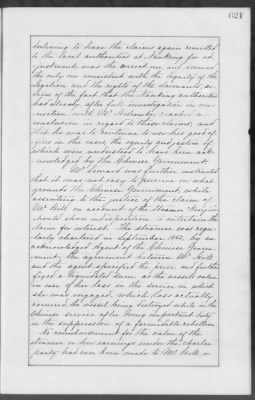 621
declining to have the claims again remitted
to the local authorities at Nanking for ad-
justment was the correct one and seemed
the only one consistent with the dignity of the
Legation and the rights of the claimants, in
view of the fact that the Nanking authorities
had already, after full investigation in con-
nection with Mr. reached a
conclusion in regard to those claims, and
that he was to continue to use his good of-
fices in the case, the equity and justice of
which were understood to have been ack-
nowledged by the Chinese Government.
Mr. Seward was further instructed
that it was not easy to perceive on what
grounds the Chinese Government, while
assenting to the justice of the claim of
Mr. Hill on account of the steamer
should show indisposition to entertain the
claim for interest. The steamer was regu-
larly chartered in September 1862, by an
acknowledged Agent of the Chinese Govern-
ment; the agreement between Mr. Hill
and the agent specified the price and further
fixed a stipulated sum as the vessel's value
in case of her loss in the service in which
she was engaged, which loss actually
occurred, the vessel being destroyed while in the
Chinese service after doing important duty
in the suppression of a formidable rebellion.
No reimbursement for the value of the
steamer or her earnings under the charter
party had ever been made to Mr. Hill, or